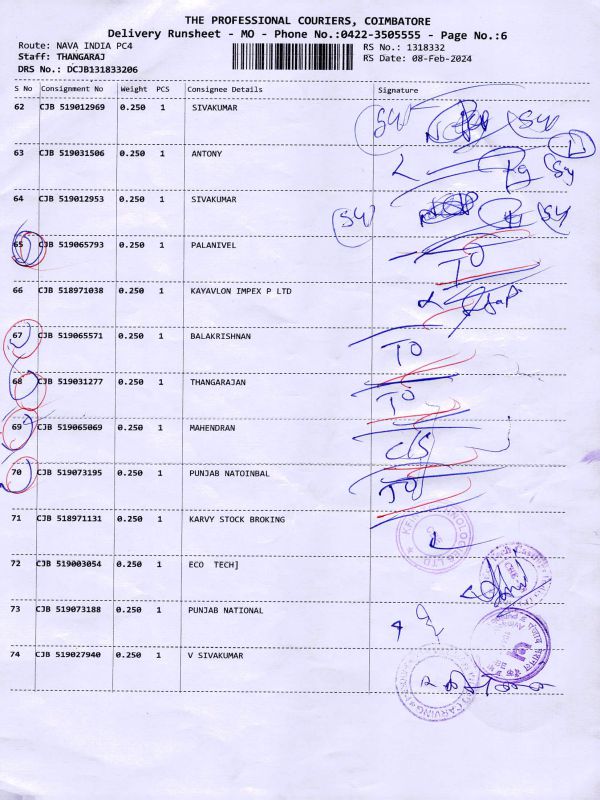 THE PROFESSIONAL COURIERS, COIMBATORE
Delivery Runsheet - MO - Phone No.:0422-3505555 - Page No.:6
Route: NAVA INDIA PC4 RS No.: 1318332
Staff: THANGARAJ RS Date: 08-Feb-2024
DRS No.: DCJB131833206
S No Consignment No Weight PCS Consignee Details Signature
62 CJB 519012969 0.250 1 SIVAKUMAR
63 CJB 519031506 0.250 1 ANTONY
64 CJB 519012953 0.250 1 SIVAKUMAR
65 CJB 519065793 0.250 1 PALANIVEL TO
66 CJB 518971038 0.250 1 KAYAVLON IMPEX P LTD
67 CJB 519065571 0.250 1 BALAKRISHNAN TO
68 CJB 519031277 0.250 1 THANGARAJAN TO
69 CJB 519065069 0.250 1 MAHENDRAN C/S
70 CJB 519073195 0.250 1 PUNJAB NATOINBAL TO
71 CJB 518971131 0.250 1 KARVY STOCK BROKING
72 CJB 519003054 0.250 1 ECO TECH]
73 CJB 519073188 0.250 1 PUNJAB NATIONAL
74 CJB 519027940 0.250 1 V SIVAKUMAR